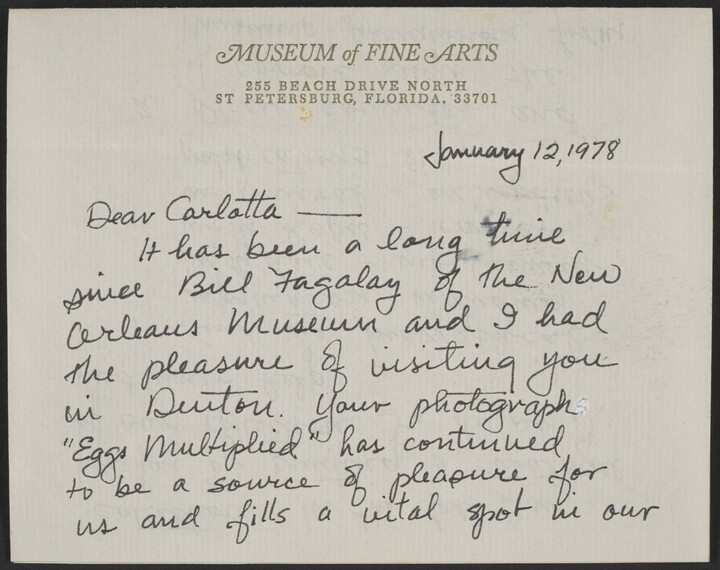 MUSEUM of FINE ARTS
255 BEACH DRIVE NORTH
ST PETERSBURG, FLORIDA. 33701
January 12, 1978
Dear Carlotta —
It has been a long time
since Bill Fagalay of the New
Orleans Museum and I had
the pleasure of visiting you
in Denton. Your photograph
"Eggs Multiplied" has continued
to be a source of pleasure for
us and fills a vital spot in our